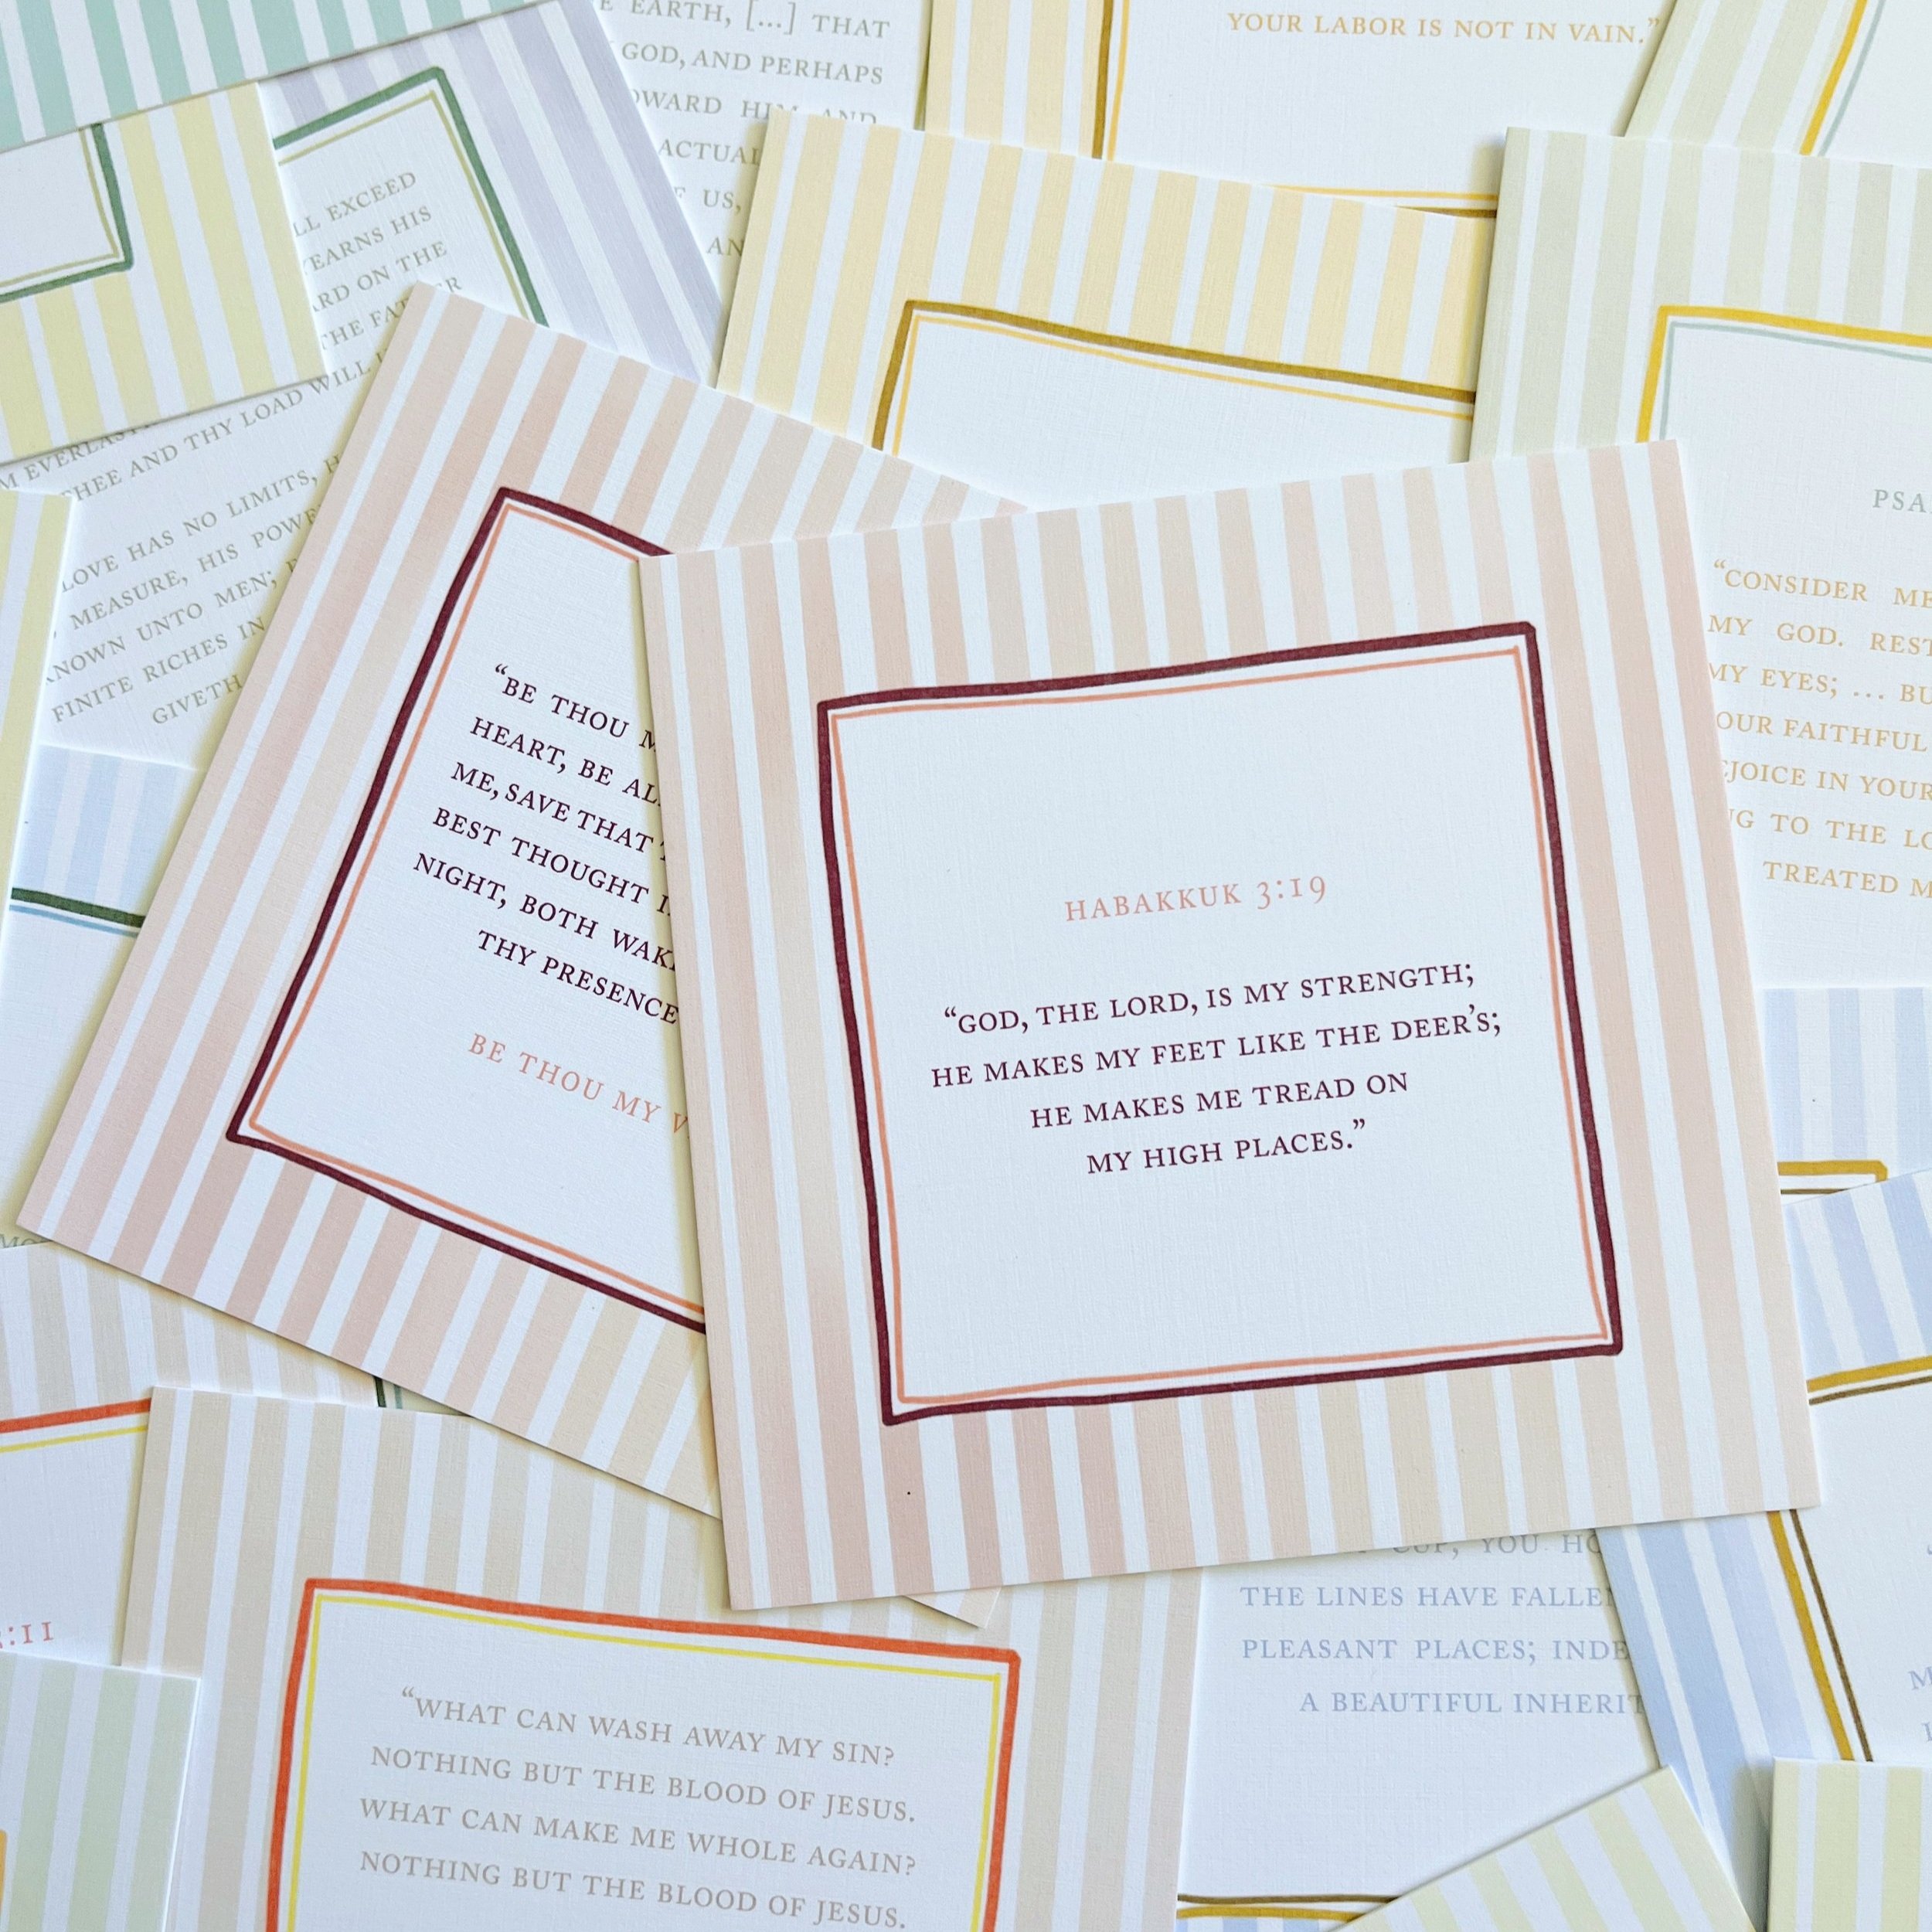 EARTH, [...] THAT
GOD, AND PERHAPS
HIM AND
ACTUAL
US,
YOUR LABOR IS NOT IN VAIN.”
EXCEED
HIS
ON THE
THE
THEE AND THY LOAD WILL
LOVE HAS NO LIMITS,
MEASURE, HIS
UNTO MEN;
RICHES IN
GIVETH
“CONSIDER
MY GOD.
MY EYES; ...
FAITHFUL
IN YOUR
TO THE
TREATED
“BE THOU
HEART, BE
ME, SAVE THAT
BEST THOUGHT
NIGHT, BOTH
THY PRESENCE
BE THOU MY
HABAKKUK 3:19
“GOD, THE LORD, IS MY STRENGTH;
HE MAKES MY FEET LIKE THE DEER’S;
HE MAKES ME TREAD ON
MY HIGH PLACES.”
CUP, YOU
THE LINES HAVE
PLEASANT PLACES;
A BEAUTIFUL
:11
“WHAT CAN WASH AWAY MY SIN?
NOTHING BUT THE BLOOD OF JESUS.
WHAT CAN MAKE ME WHOLE AGAIN?
NOTHING BUT THE BLOOD OF JESUS.